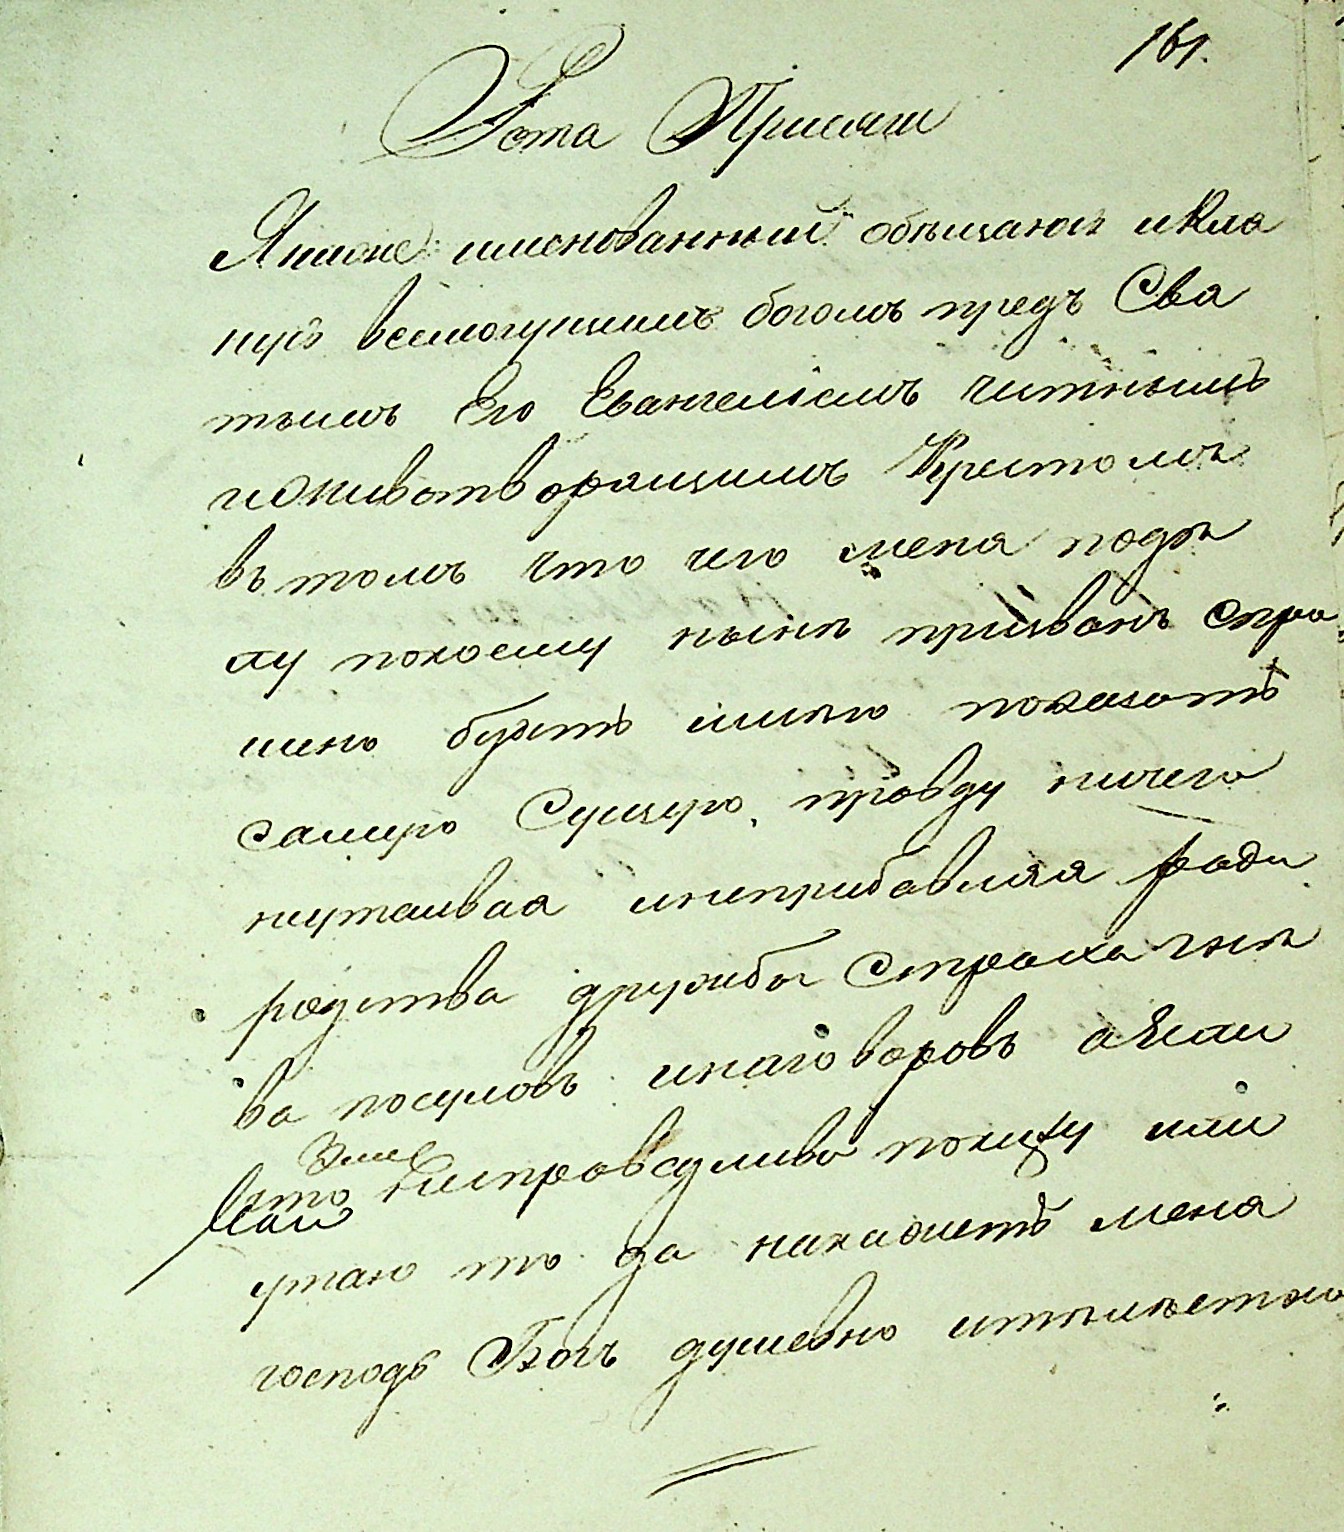 161.
Рота Присяги
Я ниже именованный обѣщаюсь и кла
нусь всемогущимъ богомъ предъ Свя
тымъ Его Евангелiемъ читнымъ
и Животворящимъ Крестомъ
въ томъ что чего меня по дѣ
лу по коему нынѣ призванъ спро
шенъ будетъ имѣю показать
самую Сущую правду ничего
неутаивая и неприбавляя ради
родства дружбы Страха гнѣ
ва посуловъ и наговоровъ а Если
что неправедливо покажу или
утаю то да накажетъ меня
господь Богъ душевно и тѣлѣстно